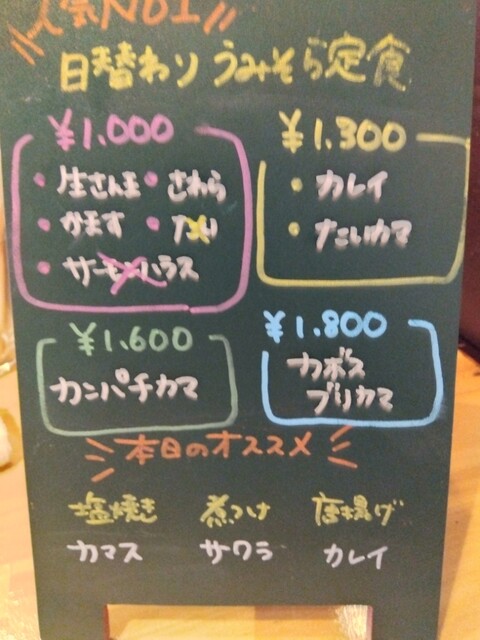 人気NO1
日替わり うみそら定食
¥1.000
・生さんま ・さわら
・かます
・サーモンハラス
¥1.300
・カレイ
・たいカマ
¥1.600
カンパチカマ
¥1.800
カボス
ブリカマ
本日のオススメ
塩焼き 煮つけ 唐揚げ
カマス サワラ カレイ